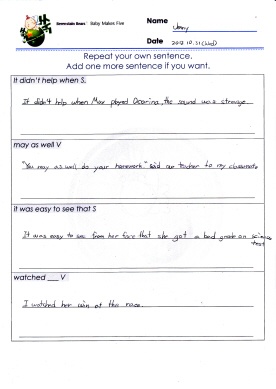 Berenstain Bears Baby Makes Five
Name Jenny
Date 2018.10.31 (Wed)
Repeat your own sentence.
Add one more sentence if you want.
It didn't help when S.
It didn't help when Max played Ocarina, the sound was strange.
may as well V
"You may as well do your homework." said our teacher to my classmate
it was easy to see that S
It was easy to see from her face that she got a bad grade on science test
watched ___ V
I watched her win at the race.